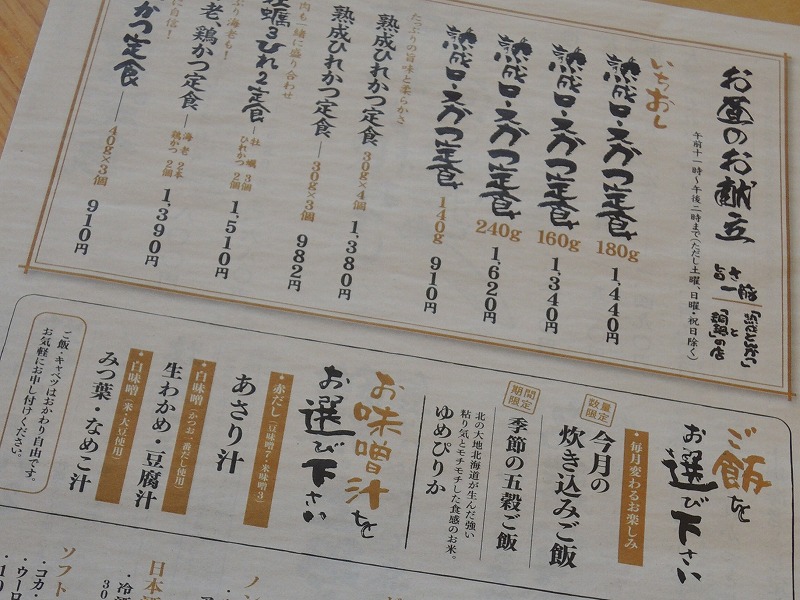 お昼のお献立
午前十一時～午後二時まで(ただし土曜、日曜・祝日除く)
いちおし
熟成ロースかつ定食 180g 1,440円
熟成ロースかつ定食 160g 1,340円
熟成ロースかつ定食 240g 1,620円
熟成ロースかつ定食 140g 910円
たっぷりの旨味と柔らかさ
熟成ひれかつ定食 30g×4個 1,380円
熟成ひれかつ定食 30g×3個 982円
肉も一緒に盛り合わせ
牡蠣3ひれ2定食 牡蠣 3個 ひれかつ 2個 1,510円
ぷり海老も!
老、鶏かつ定食 海老 2本 鶏かつ 2個 1,390円
に自信!
かつ定食 40g×3個 910円
ご飯をお選び下さい
・毎月変わるお楽しみ
数量限定
今月の炊き込みご飯
期間限定
季節の五穀ご飯
北の大地北海道が生んだ強い
粘り気とモチモチした食感のお米。
ゆめぴりか
お味噌汁をお選び下さい
・赤だし(豆味噌7・米味噌3)
あさり汁
・白味噌(かつお一番だし使用)
生わかめ・豆腐汁
・白味噌(米・大豆使用)
みつ葉・なめこ汁
ご飯・キャベツはおかわり自由です。
お気軽にお申し付けください。
日本
・冷酒
30
ソフト
・コカ・
・ウーロ